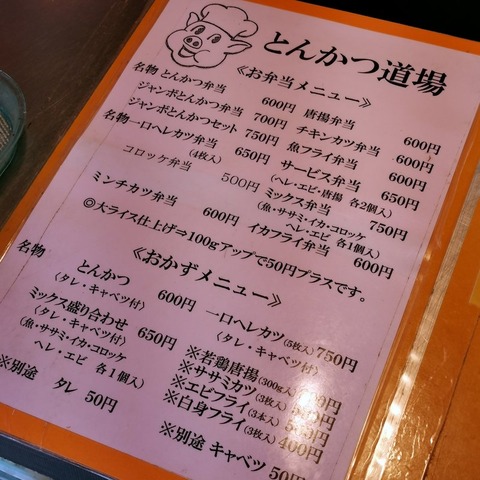 とんかつ道場
《お弁当メニュー》
名物 とんかつ弁当 600円
ジャンボとんかつ弁当 700円
ジャンボとんかつセット 750円
名物一口ヘレカツ弁当 650円
(4枚入)
コロッケ弁当 500円
ミンチカツ弁当 600円
唐揚弁当 600円
チキンカツ弁当 600円
魚フライ弁当 600円
サービス弁当 650円
(ヘレ・エビ・唐揚 各2個入)
ミックス弁当 750円
(魚・ササミ・イカ・コロッケ
ヘレ・エビ 各1個入)
イカフライ弁当 600円
◎大ライス仕上げ⇒100gアップで50円プラスです。
《おかずメニュー》
名物
とんかつ 600円
(タレ・キャベツ付)
ミックス盛り合わせ 650円
(タレ・キャベツ付)
(魚・ササミ・イカ・コロッケ
ヘレ・エビ 各1個入)
※別途 タレ 50円
一口ヘレカツ(5枚入) 750円
(タレ・キャベツ付)
※若鶏唐揚(300g入) 円
※ササミカツ(3枚入) 円
※エビフライ(3本入) 円
※白身フライ(3枚入) 400円
※別途 キャベツ 50円